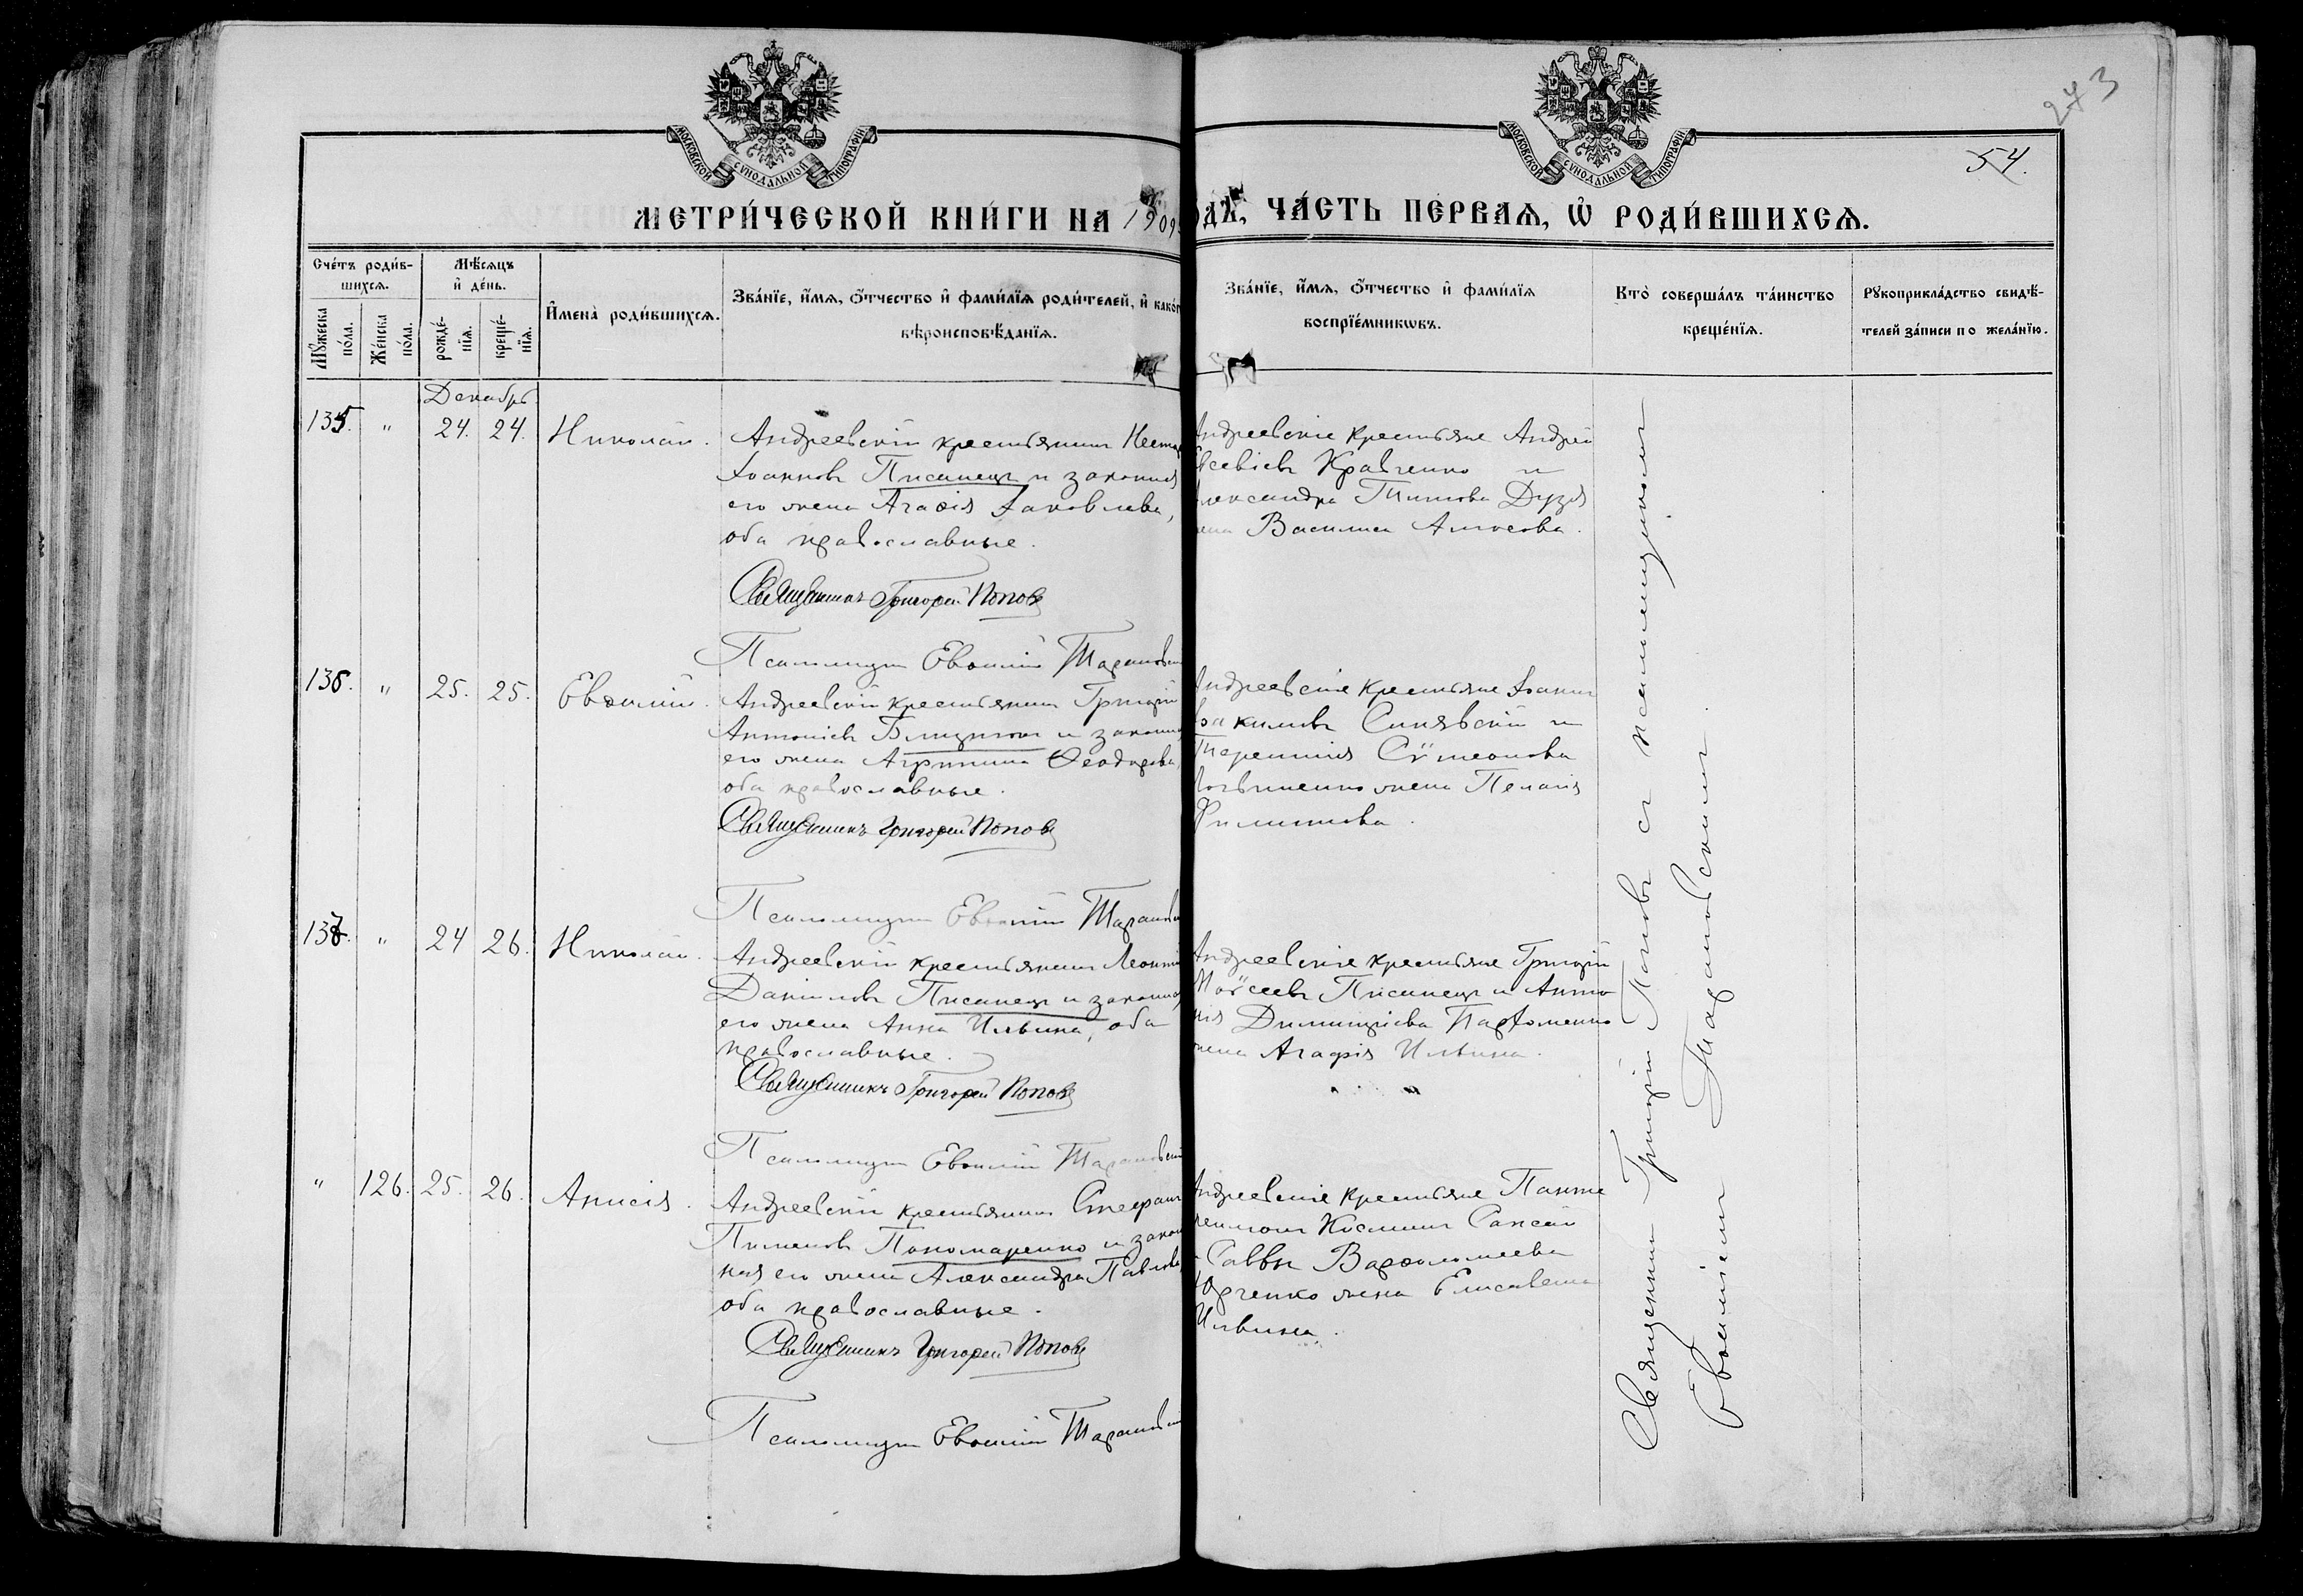 МОСКОВСКОЙ СУНОДАЛЬНОЙ ТИПОГРАФІИ
МОСКОВСКОЙ СУНОДАЛЬНОЙ ТИПОГРАФІИ
243
54.
МЕТРИ́ЧЕСКОЙ КНИ́ГИ НА 1909
ОДЪ, ЧА́СТЬ ПЕ́РВАѦ, Ѡ҆ РОДИ́ВШИХСѦ.
Сче́тъ роди́в-
шихсѧ.
Мѣ́сѧцъ
и҆ де́нь.
Мꙋ́жеска
по́ла.
Же́нска
по́ла.
рожде́-
нїѧ.
креще́-
нїѧ.
И҆мена̀ роди́вшихсѧ.
Зва́нїе, и҆́мѧ, ѻ҆́тчество и҆ фами́лїѧ роди́телей, и҆ како́г
вѣроисповѣ́данїѧ.
Зва́нїе, и҆́мѧ, ѻ҆́тчество и҆ фами́лїѧ
воспрїе́мникѡвъ.
Кто̀ соверша́лъ та́инство
креще́нїѧ.
Рꙋкоприкла́дство свидѣ́-
телей за́писи по жела́нїю.
Декабрь
135. " 24. 24. Николай.
Андреевскій крестьянинъ Нестор
Іоанновъ Писанецъ и законная
его жена Агаѳія Іаковлева,
оба православные.
Священникъ Григорій Поповъ
Псаломщикъ Евѳимій Тарановскій
Андреевскіе крестьяне Андрей
Евсевіевъ Кравченко и
Александра Титова Дузя
жена Василиса Амосова.
136. " 25. 25. Евѳимій.
Андреевскій крестьянинъ Григорій
Антоніевъ Близнюкъ и законная
его жена Агриппина Ѳеодорова,
оба православные.
Священникъ Григорій Поповъ
Псаломщикъ Евѳимій Тарановскій
Андреевскіе крестьяне Іоаннъ
Іоакимовъ Синявскій и
Терентія Сѵмеонова
жена Пелагія
Филиппова.
137. " 24 26. Николай.
Андреевскій крестьянинъ Леонтій
Даніиловъ Писанецъ и законная
его жена Анна Ильина, оба
православные.
Священникъ Григорій Поповъ
Псаломщикъ Евѳимій Тарановскій
Андреевскіе крестьяне Григорій
Моѵсеевъ Писанецъ и Анто
нія Димитріева Парѳоменко
жена Агафія Ильина.
" 126. 25. 26. Анисія.
Андреевскій крестьянинъ Стефанъ
Пименовъ Пономаренко и закон
ная его жена Александра Павлова,
оба православные.
Священникъ Григорій Поповъ
Псаломщикъ Евѳимій Тарановскій
Андреевскіе крестьяне Панте
леимонъ Косминъ Сансай
и Саввы Варѳоломеева
Юрченко жена Елисавета
Ильина.
Священникъ Григорій Поповъ съ псаломщикомъ
Евѳиміемъ Тарановскимъ.